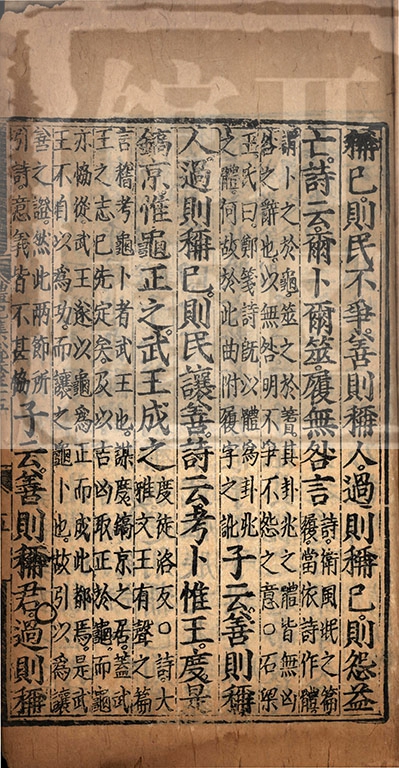 稱己則民不爭善則稱人過則稱己則怨益
亡詩云爾卜爾筮履無咎言
詩衛風氓之篇
履當依詩作體
謂卜之於龜筮之於蓍其卦兆之體皆無凶
咎之辭也以無咎明不爭不怨之意○石梁
王氏曰鄭箋詩既以體爲卦兆
之體何故於此曲附履字之訛
子云善則稱
人過則稱己則民讓善詩云考卜惟王度是
鎬京惟龜正之武王成之
度徒洛反○詩大
雅文王有聲之篇
言稽考龜卜者武王也謀度鎬京之居蓋武
王之志已先定矣及以吉凶取正於龜而龜
亦恊從武王遂以龜爲正而成此都焉是武
王不自以爲功而讓之龜卜也故引以爲讓
善之證然此兩節所
引詩意義皆不甚恊
子云善則稱君過則稱